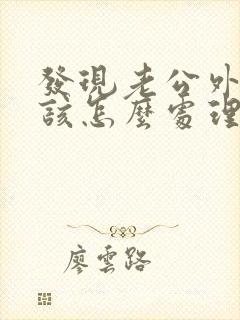 發現老公外
該怎麼處理
廖雲路